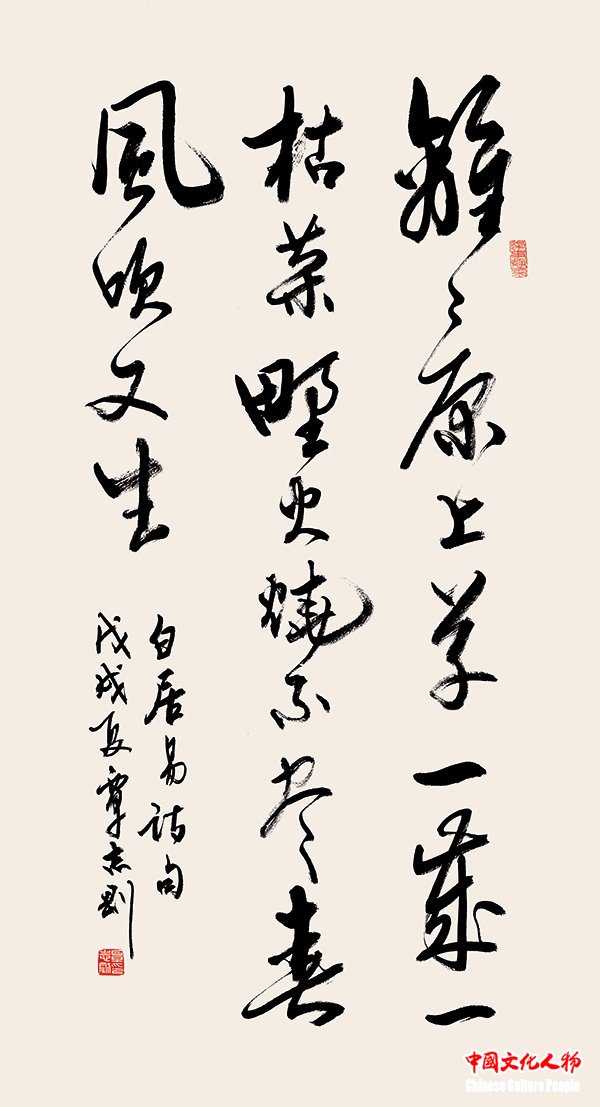 離〻原上草一歲一
枯榮野火燒不尽春
風吹又生
白居易詩句
戊戌夏覃志剛
中國文化人物
Chinese Culture People